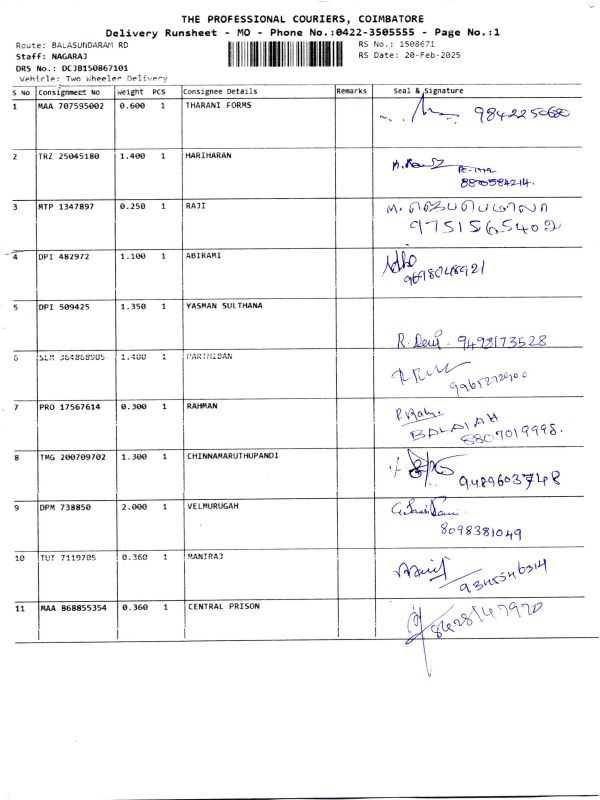 THE PROFESSIONAL COURIERS, COIMBATORE
Delivery Runsheet - MO - Phone No.:0422-3505555 - Page No.:1
Route: BALASUNDARAM RD
RS No.: 1508671
Staff: NAGARAJ
RS Date: 20-Feb-2025
DRS No.: DCJB150867101
Vehicle: Two Wheeler Delivery
S No Consignment No Weight PCS Consignee Details Remarks Seal & Signature
1 MAA 707595002 0.600 1 THARANI FORMS
2 TRZ 25045180 1.400 1 HARIHARAN
8870584214.
3 MTP 1347897 0.250 1 RAJI
9751565402
4 DPI 482972 1.100 1 ABIRAMI
9698048921
5 DPI 509425 1.350 1 YASMAN SULTHANA
R. Devi. 9498173528
6 SLM 364868905 1.400 1 PARTHIBAN
7 PRO 17567614 0.300 1 RAHMAN
BALAIAH
8807019998.
8 TMG 200709702 1.300 1 CHINNAMARUTHUPANDI
9489603748
9 DPM 738850 2.000 1 VELMURUGAH
8098381049
10 TUT 7119705 0.360 1 MANIRAJ
9345546314
11 MAA 868855354 0.360 1 CENTRAL PRISON